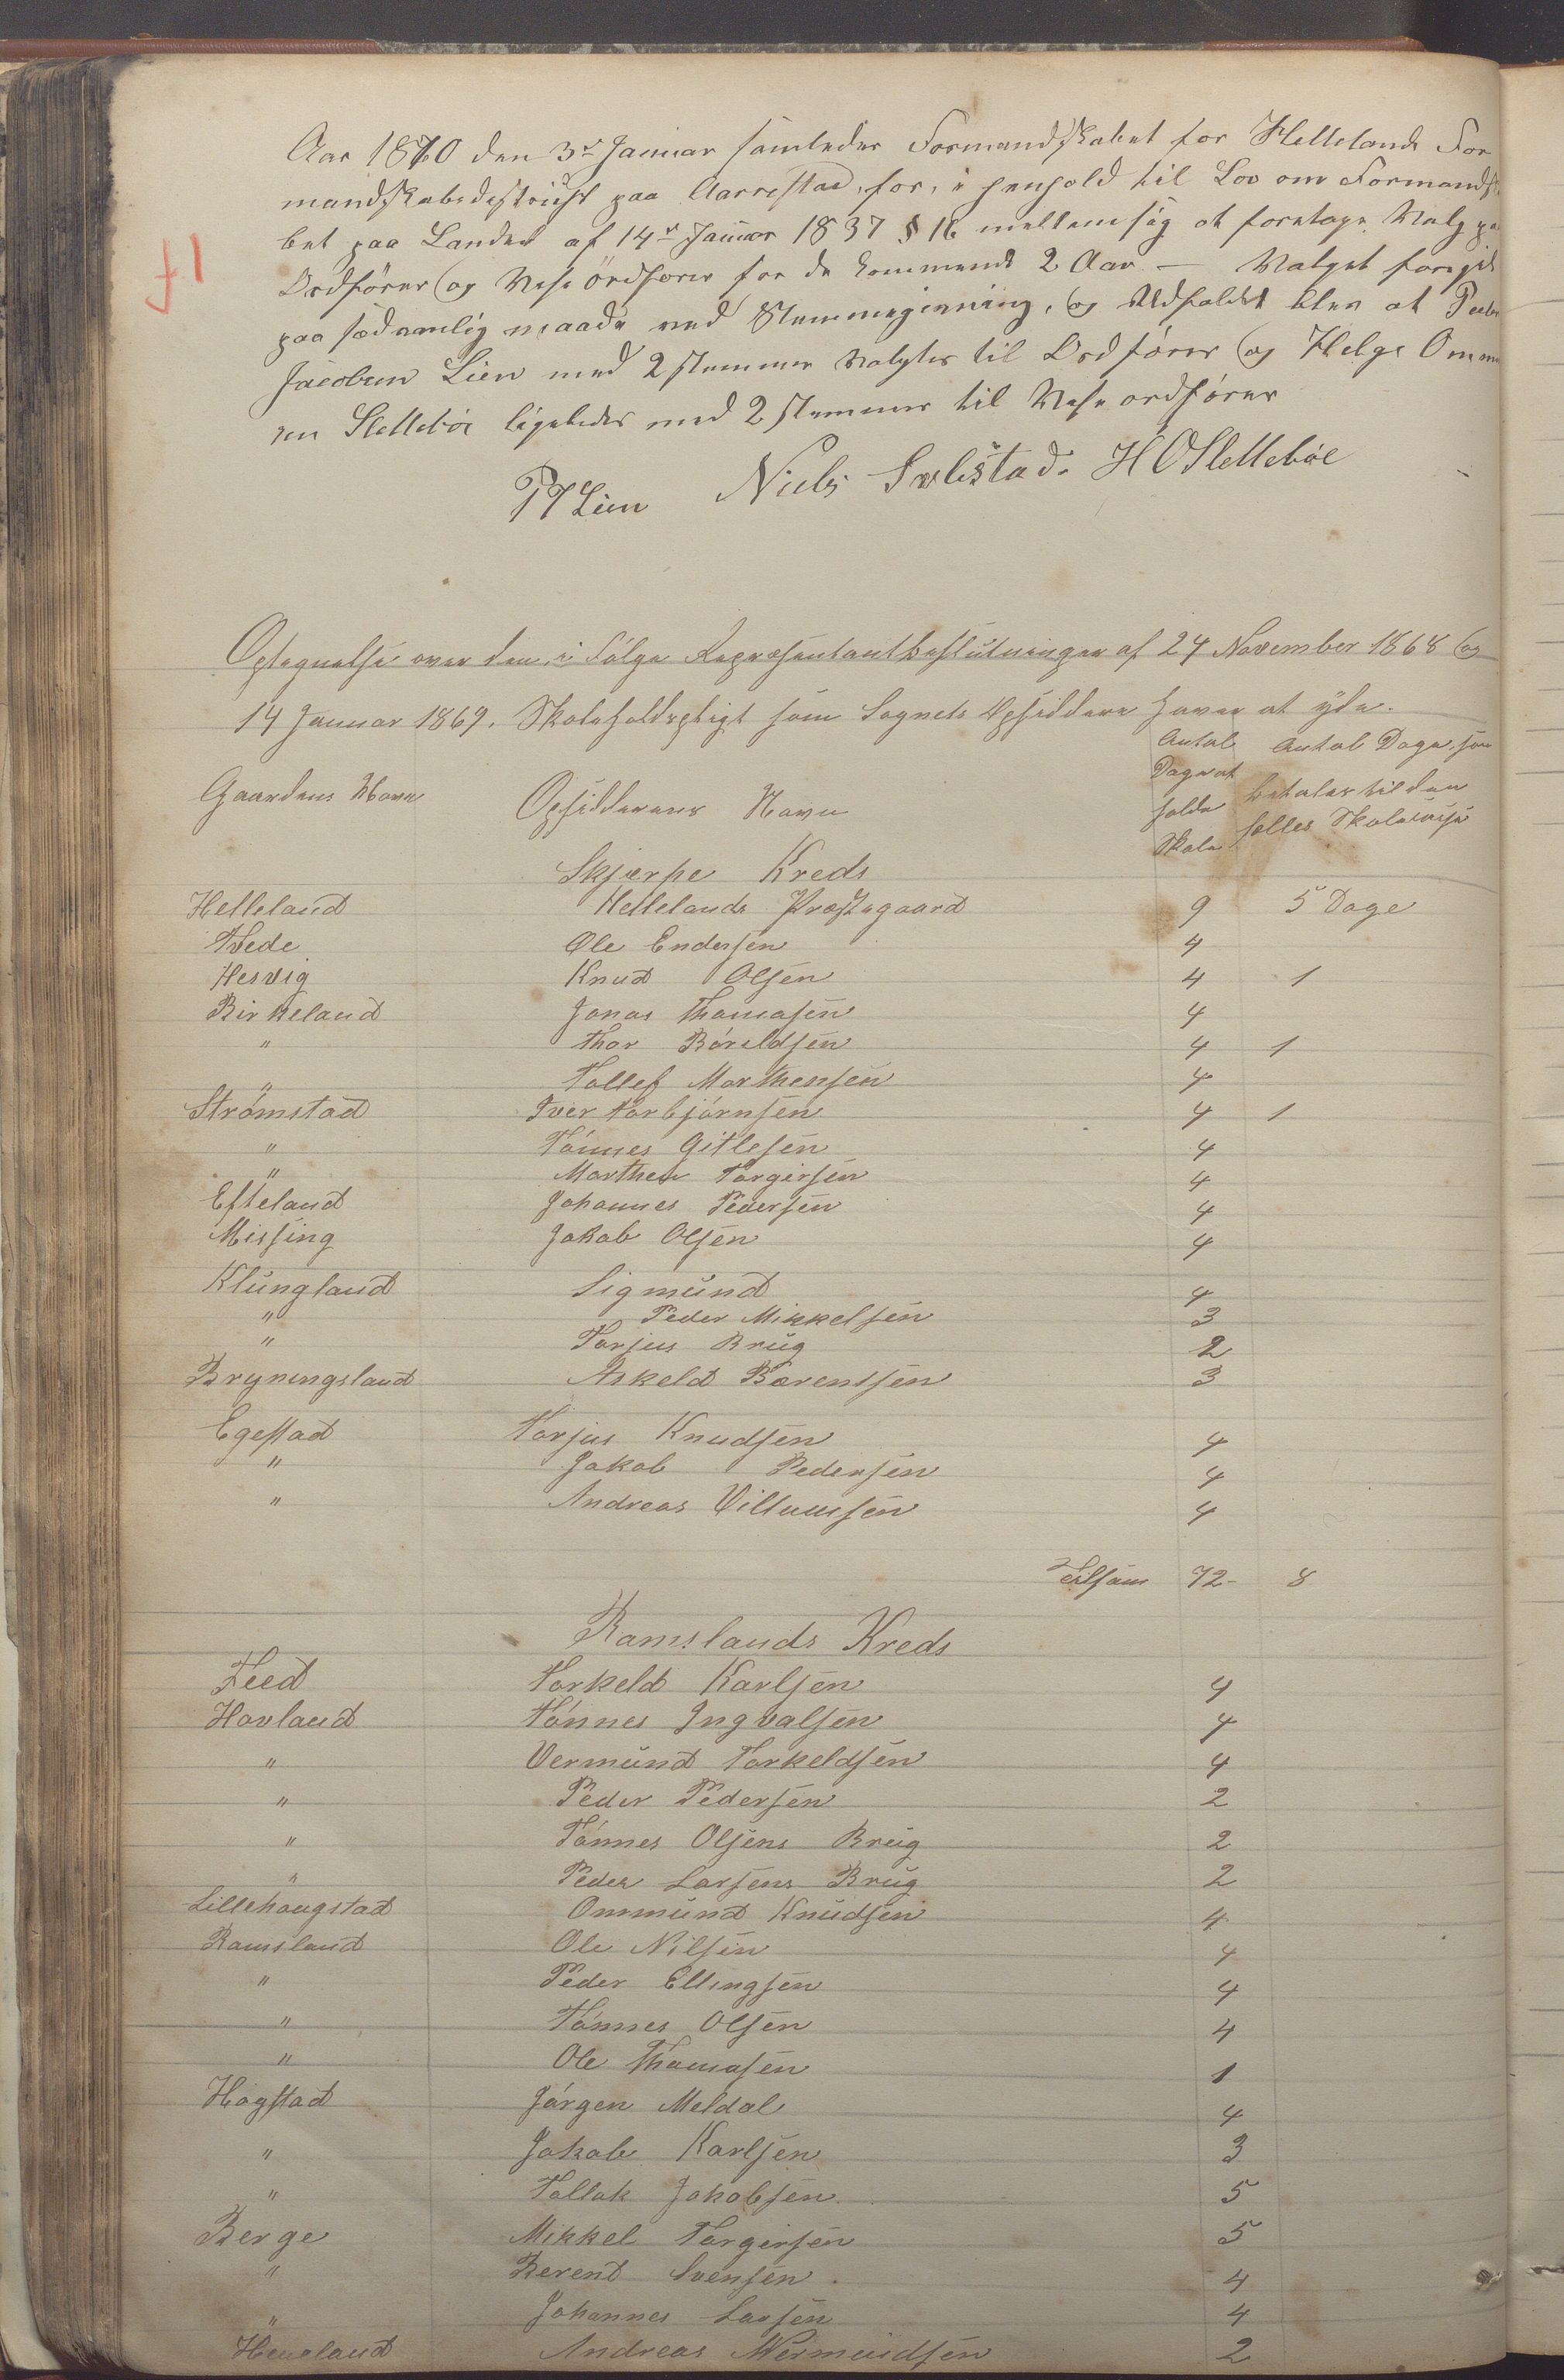 f1
Aar 1870 den 3de Januar samledes Formandskabet for Hellelands For
mandskabsdistrict paa Aarrestad, for, i henhold til Lov om Formandska
bet paa Landet af 14de Januar 1837 § 16 mellem sig at foretage Valg paa
Ordförer og Vise ordförer for de kommende 2 Aar – Valget foregik
paa sædvanlig maade ved Stemmegivning, og Udfaldet blev at Peder
Jacobsen Lien med 2 stemmer valgtes til Ordförer og Helge Omm
sen Slettebøe ligeledes med 2 stemmer til Vise ordförer
PJ Lien Niels H O Slettebøe
Optegnelse over den, i Følge Repræsentantbeslutninger af 24 November 1868 og
14 Januar 1869. Skoleholdspligt som Sognets Opsiddere haver at yde.
Gaardens Navn Opsidderens Navn Antal Dage at holde Skole Antal Dage, som betales til den fælles Skolecasse
Skjærpe Kreds
Helleland Hellelands Præstegaard 9 5 Dage
Tvede Ole Endersen 4
Hesvig Knud Olsen 4 1
Birkeland Jonas Thomasen 4
" Thor Bóreldsen 4 1
" Tollef Morthensen 4
Strómstad Iver Torbjórnsen 4 1
" Tónnes Gitlesen 4
" Morthen Torgersen 4
Efteland Johannes Pedersen 4
Missing Jakob Olsen 4
Klungland Sigmund 4
" Peder Mikkelsen 3
" Torjus Brug 2
Bryningsland Askeld Bærentsen 3
Egestad Torjus Knudsen 4
" Jakob Pedersen 4
" Andreas Villumsen 4
Tilsam 72- 8
Ramslands Kreds
Teed Torkeld Karlsen 4
Hovland Tónnes Ingvalsen 4
" Vermund Torkeldsen 4
" Peder Pedersen 2
" Tónnes Olsens Brug 2
" Peder Larsens Brug 2
Lillehougstad Ommund Knudsen 4
Ramsland Ole Nilsen 4
" Peder Ellingsen 4
" Tónnes Olsen 4
" Ole Thomasen 1
Hogstad Jórgen Meldal 4
" Jakob Karlsen 3
" Tollak Jakobsen 5
Berge Mikkel Torgersen 5
" Berent Svensen 4
" Johannes Larsen 4
Andreas Wermundsen 2